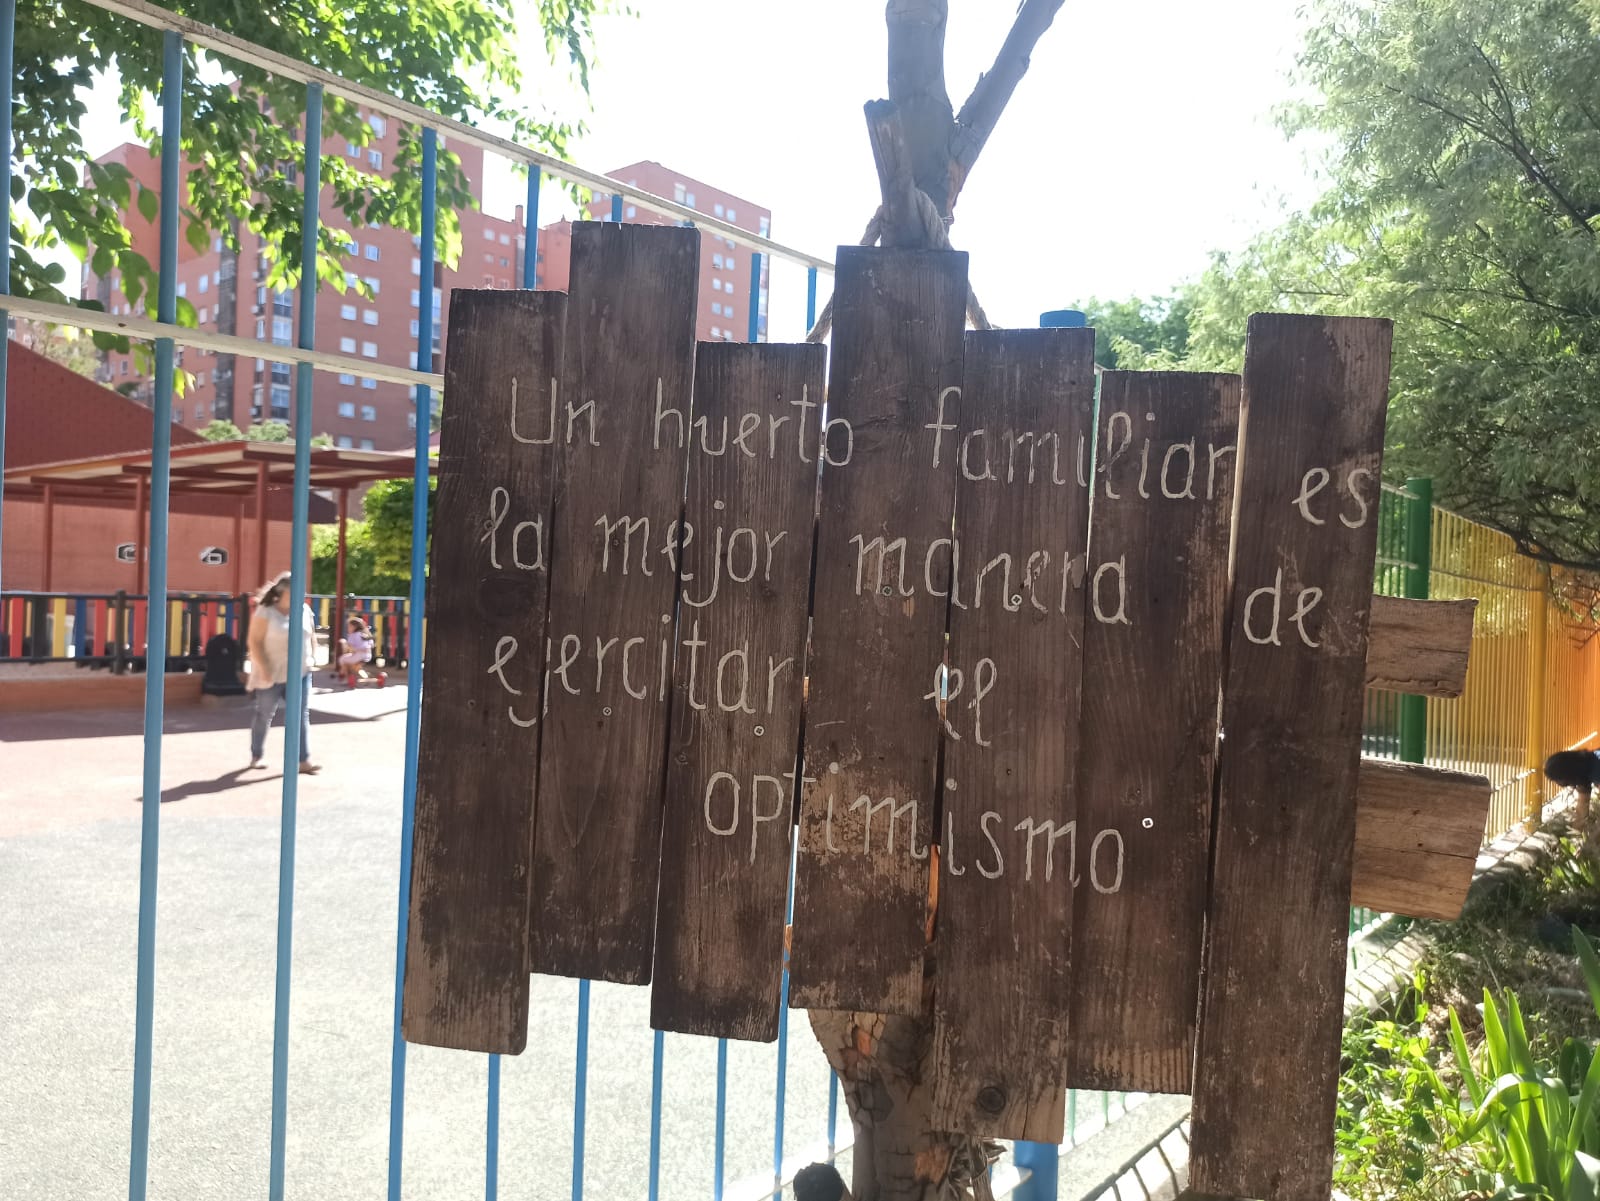 Un huerto familiar es
la mejor manera de
ejercitar el
optimismo